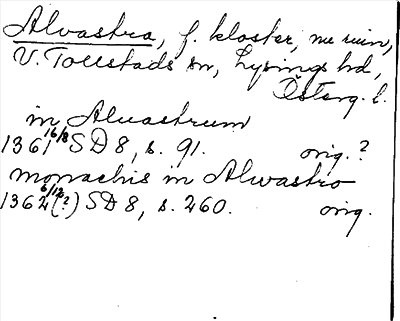 Alvastra, f. kloster, nu ruin,
V. Tollstads sn, Lysings hd,
Österg. l.
in Aluastrum
1361 16/8 SD 8, s. 91. orig.?
monachis in Alwastro
1362 6/12 (?) SD 8, s. 260. orig.